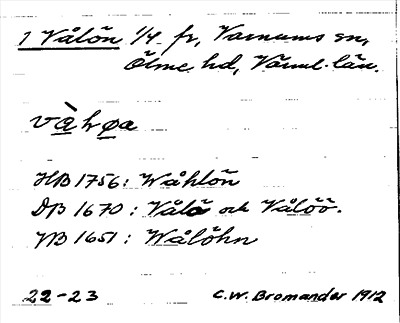 1 Vålön 1/4 fr, Varnums sn,
Ölme hd, Värml. län.
vàhøa
HB 1756: Wåhlön
DB 1670: Vålö och Vålöö.
JB 1651: Wålöhn
22-23 C.W. Bromander 1912